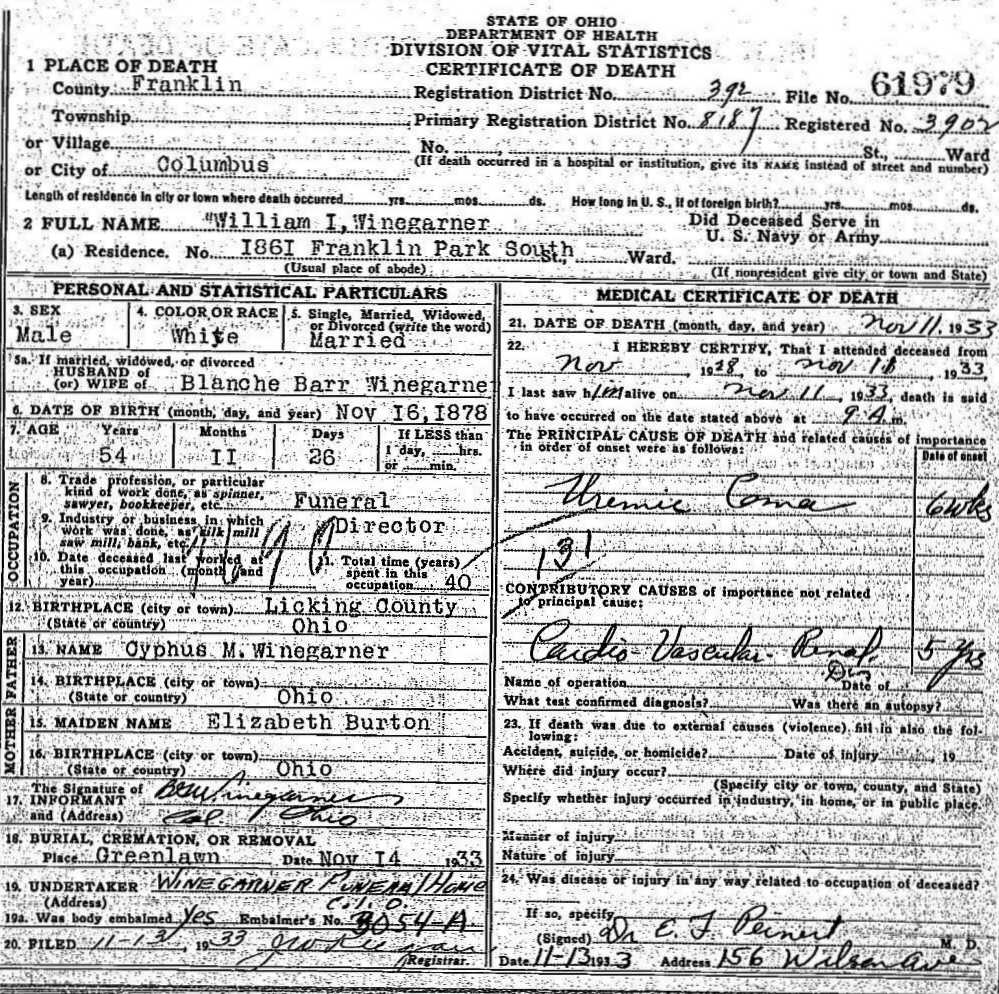 STATE OF OHIO
DEPARTMENT OF HEALTH
DIVISION OF VITAL STATISTICS
CERTIFICATE OF DEATH
1 PLACE OF DEATH
County Franklin
Registration District No. 392 File No. 61979
Township
Primary Registration District No. 8187 Registered No. 3902
or Village
No. St., Ward
(If death occurred in a hospital or institution, give its NAME instead of street and number)
or City of Columbus
Length of residence in city or town where death occurred yrs. mos. ds. How long in U. S., if of foreign birth? yrs. mos. ds.
2 FULL NAME "William I, Winegarner
Did Deceased Serve in
U. S. Navy or Army
(a) Residence. No. I86I Franklin Park South St., Ward.
(Usual place of abode) (If nonresident give city or town and State)
PERSONAL AND STATISTICAL PARTICULARS
3. SEX
Male
4. COLOR OR RACE
White
5. Single, Married, Widowed,
or Divorced (write the word)
Married
5a. If married, widowed, or divorced
HUSBAND of
(or) WIFE of Blanche Barr Winegarner
6. DATE OF BIRTH (month, day, and year) Nov I6,I878
7. AGE Years Months Days
54 II 26
If LESS than
1 day, hrs.
or min.
OCCUPATION
8. Trade profession, or particular
kind of work done, as spinner,
sawyer, bookkeeper, etc. Funeral
9. Industry or business in which
work was done, as silk mill
saw mill, bank, etc. Director
10. Date deceased last worked at
this occupation (month and
year)
11. Total time (years)
spent in this
occupation 40
12. BIRTHPLACE (city or town) Licking County
(State or country) Ohio
FATHER
13. NAME Cyphus M. Winegarner
14. BIRTHPLACE (city or town)
(State or country) Ohio
MOTHER
15. MAIDEN NAME Elizabeth Burton
16. BIRTHPLACE (city or town)
(State or country) Ohio
The Signature of
17. INFORMANT Winegarner
and (Address) Col Ohio
18. BURIAL, CREMATION, OR REMOVAL
Place Greenlawn Date Nov I4 1933
19. UNDERTAKER WINEGARNER FUNERAL HOME
(Address) C.I.O.
19a. Was body embalmed yes Embalmer's No. 3054-A
20. FILED 11-13, 1933
Registrar.
MEDICAL CERTIFICATE OF DEATH
21. DATE OF DEATH (month, day, and year) Nov 11, 1933
22. I HEREBY CERTIFY, That I attended deceased from
Nov, 1928, to Nov 11, 1933
I last saw him alive on Nov 11, 1933, death is said
to have occurred on the date stated above at 9 A m.
The PRINCIPAL CAUSE OF DEATH and related causes of importance
in order of onset were as follows:
Date of onset
Uremic Coma 6 wks
131
CONTRIBUTORY CAUSES of importance not related
to principal cause:
Cardio-Vascular-Renal 5 yrs
Name of operation Date of
What test confirmed diagnosis? Was there an autopsy?
23. If death was due to external causes (violence) fill in also the fol-
lowing:
Accident, suicide, or homicide? Date of injury, 19
Where did injury occur?
(Specify city or town, county, and State)
Specify whether injury occurred in industry, in home, or in public place.
Manner of injury
Nature of injury
24. Was disease or injury in any way related to occupation of deceased?
If so, specify
(Signed) Dr E. F. Peinert M. D.
Date 11-13 1933 Address 156 Wilson Ave